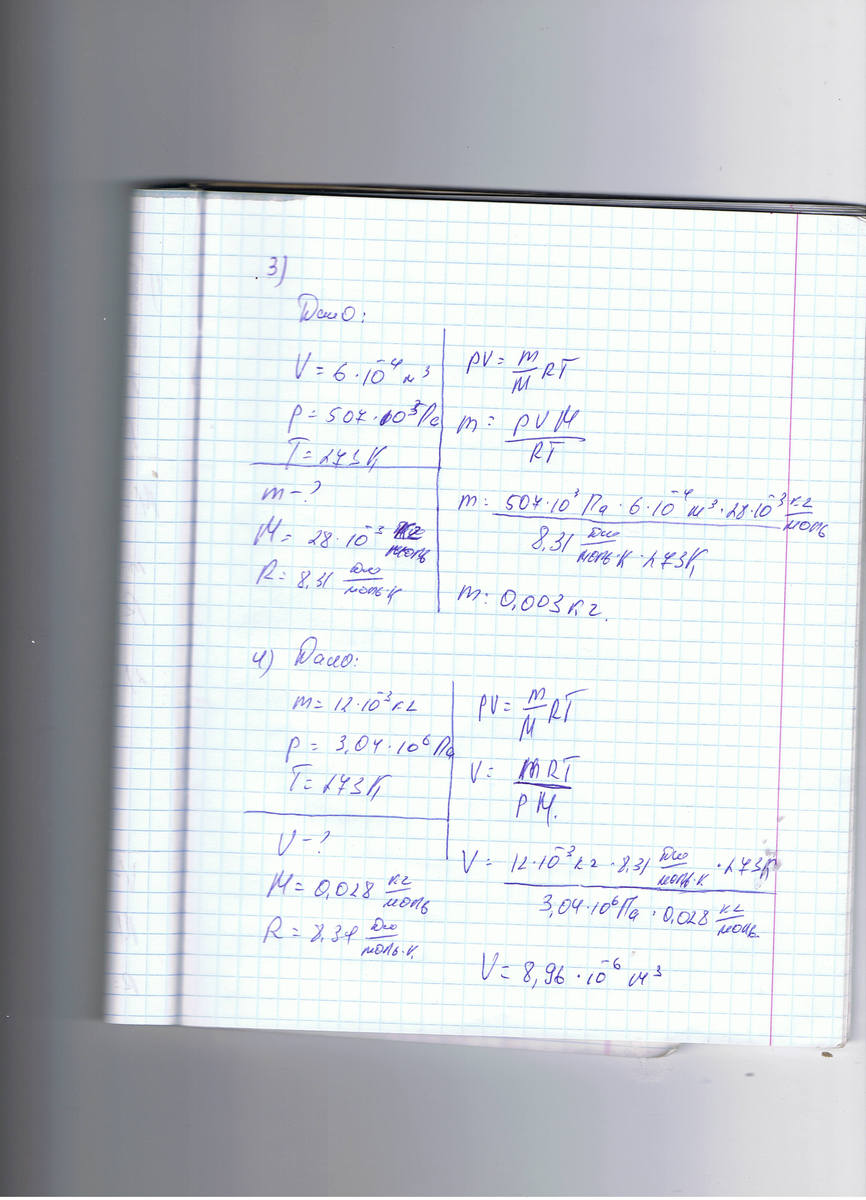 3)
Дано:
V = 6·10⁻⁴ м³
p = 507·10³ Па
T = 273 К
m - ?
M = 28·10⁻³ кг/моль
R = 8,31 Дж/моль·К
pV = m/M RT
m = pVM/RT
m = 507·10³ Па · 6·10⁻⁴ м³ · 28·10⁻³ кг/моль / 8,31 Дж/моль·К · 273 К
m = 0,003 кг.
4) Дано:
m = 12·10⁻³ кг
p = 3,04·10⁶ Па
T = 273 К
V - ?
M = 0,028 кг/моль
R = 8,31 Дж/моль·К
pV = m/M RT
V = mRT/pM.
V = 12·10⁻³ кг · 8,31 Дж/моль·К · 273 К / 3,04·10⁶ Па · 0,028 кг/моль
V = 8,96·10⁻⁶ м³